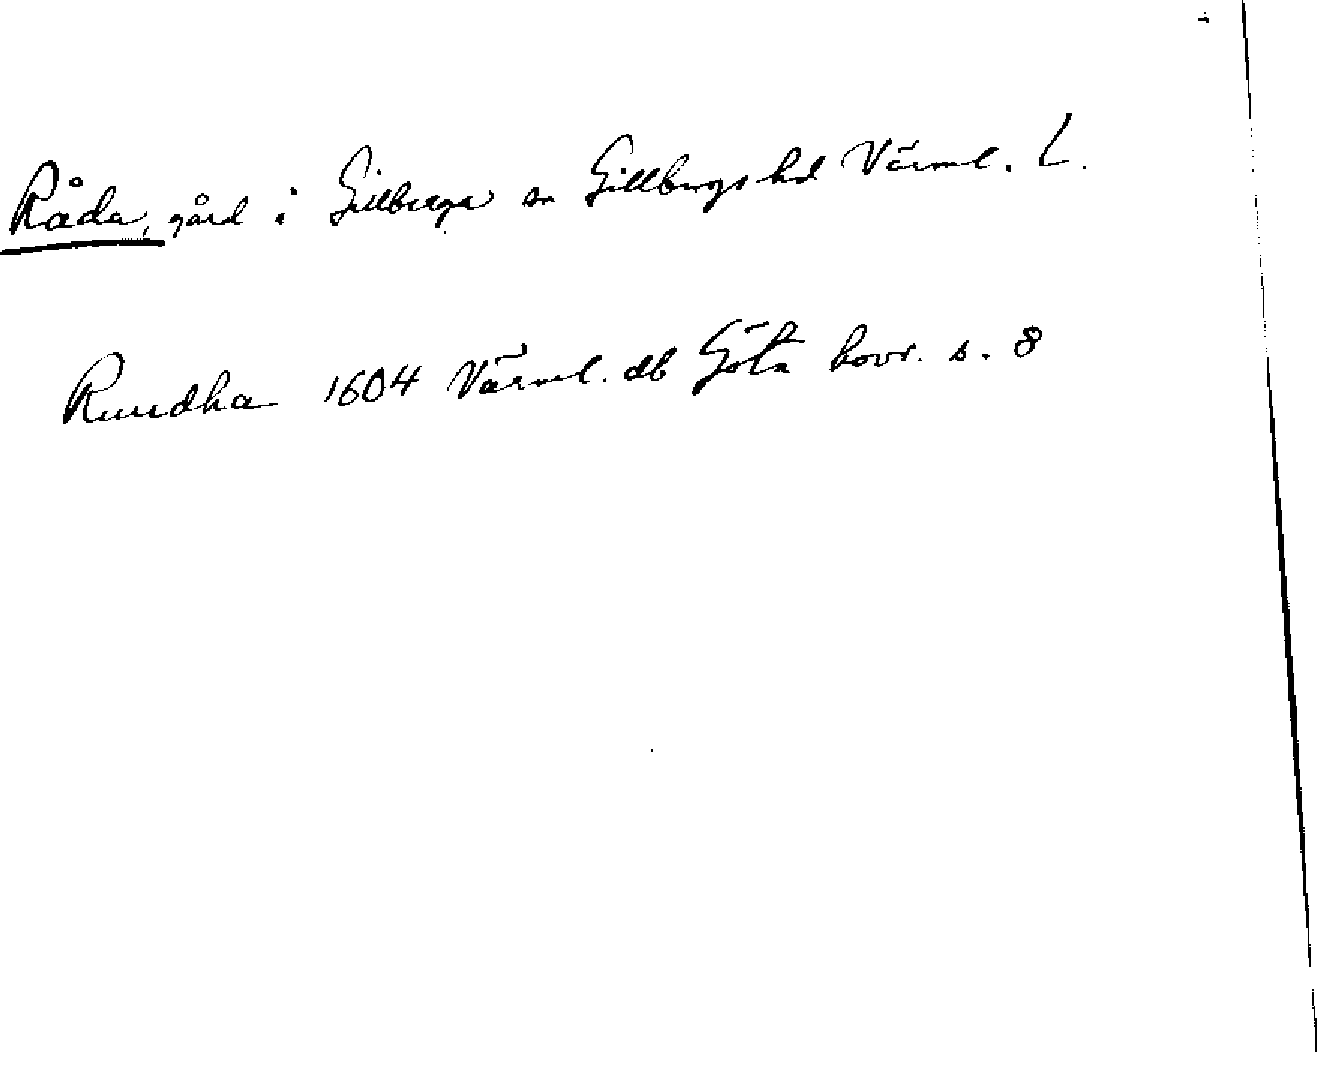 Råda, gård i Gillberga sn Gillbergs hd Värml. L.
Rundha 1604 Värml. db Göta hovr. s. 8